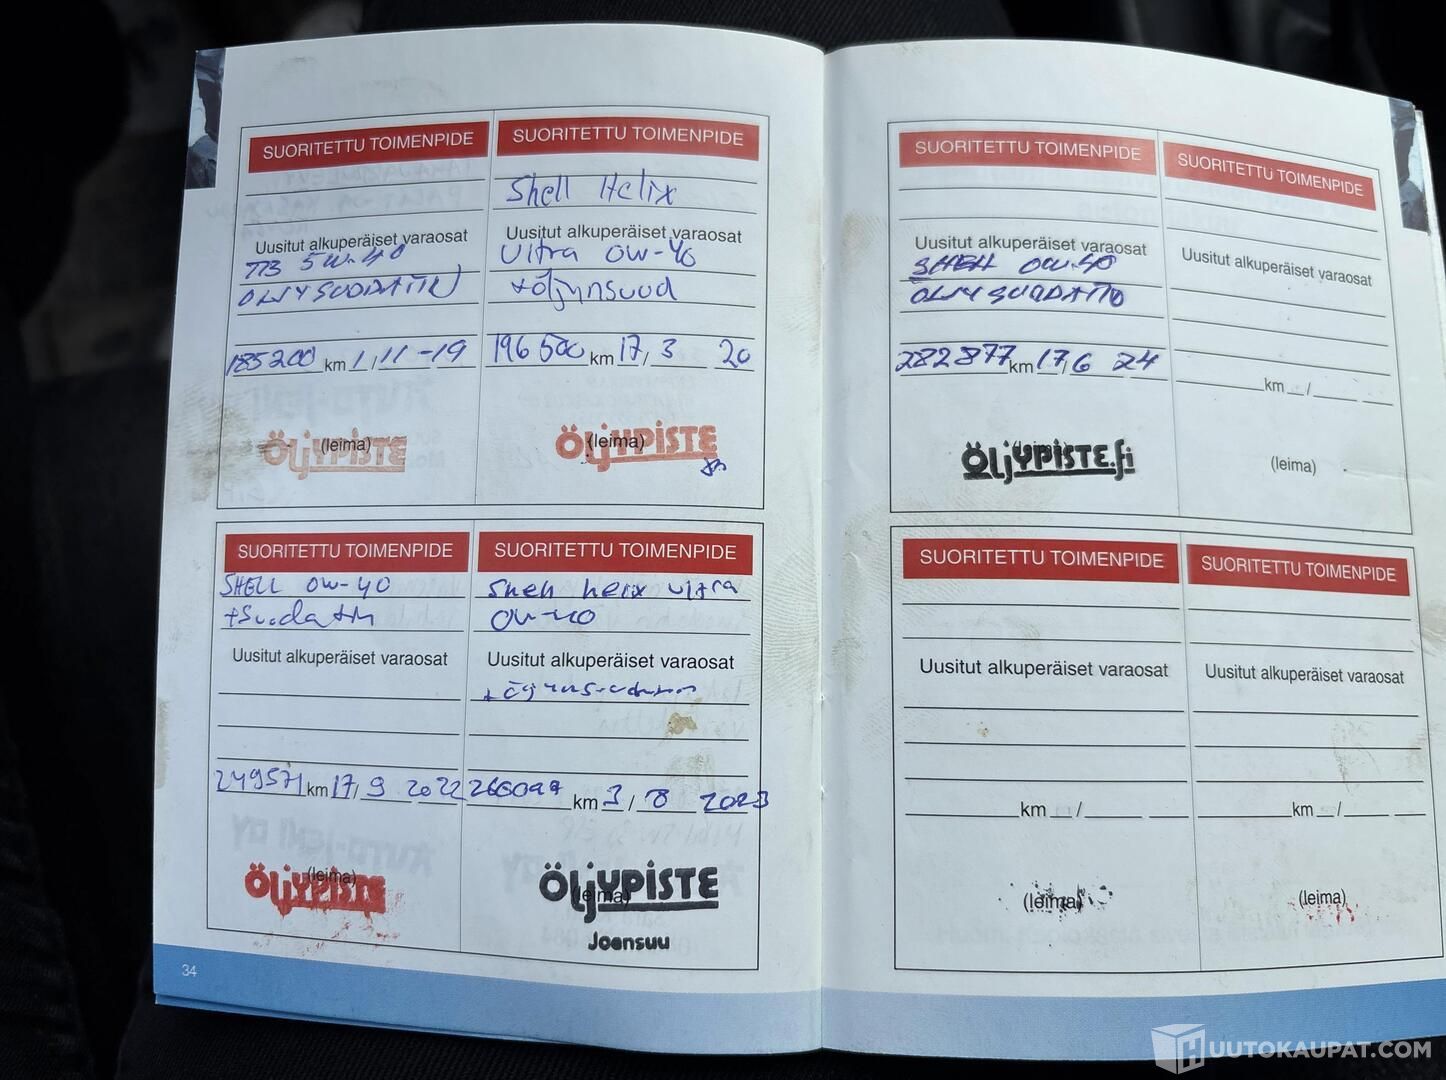 SUORITETTU TOIMENPIDE
Uusitut alkuperäiset varaosat
5W-40
ÖLJYSUODATIN
185200 km 1/11-19
(leima)
ÖLJYPISTE
SUORITETTU TOIMENPIDE
Shell Helix
Uusitut alkuperäiset varaosat
Ultra 0W-40
+öljynsuod
196 500 km 17/3 20
(leima)
ÖLJYPISTE
SUORITETTU TOIMENPIDE
SHELL 0W-40
+Suodatin
Uusitut alkuperäiset varaosat
249571 km 17/9 2022
(leima)
ÖLJYPISTE
SUORITETTU TOIMENPIDE
Shell helix ultra
0W-40
Uusitut alkuperäiset varaosat
km 3/8 2023
(leima)
ÖLJYPISTE
Joensuu
34
SUORITETTU TOIMENPIDE
Uusitut alkuperäiset varaosat
SHELL 0W-40
ÖLJYSUODATIN
282877 km 17/6 24
(leima)
ÖLJYPISTE.fi
SUORITETTU TOIMENPIDE
Uusitut alkuperäiset varaosat
km /
(leima)
SUORITETTU TOIMENPIDE
Uusitut alkuperäiset varaosat
km /
(leima)
SUORITETTU TOIMENPIDE
Uusitut alkuperäiset varaosat
km /
(leima)
HUUTOKAUPAT.COM